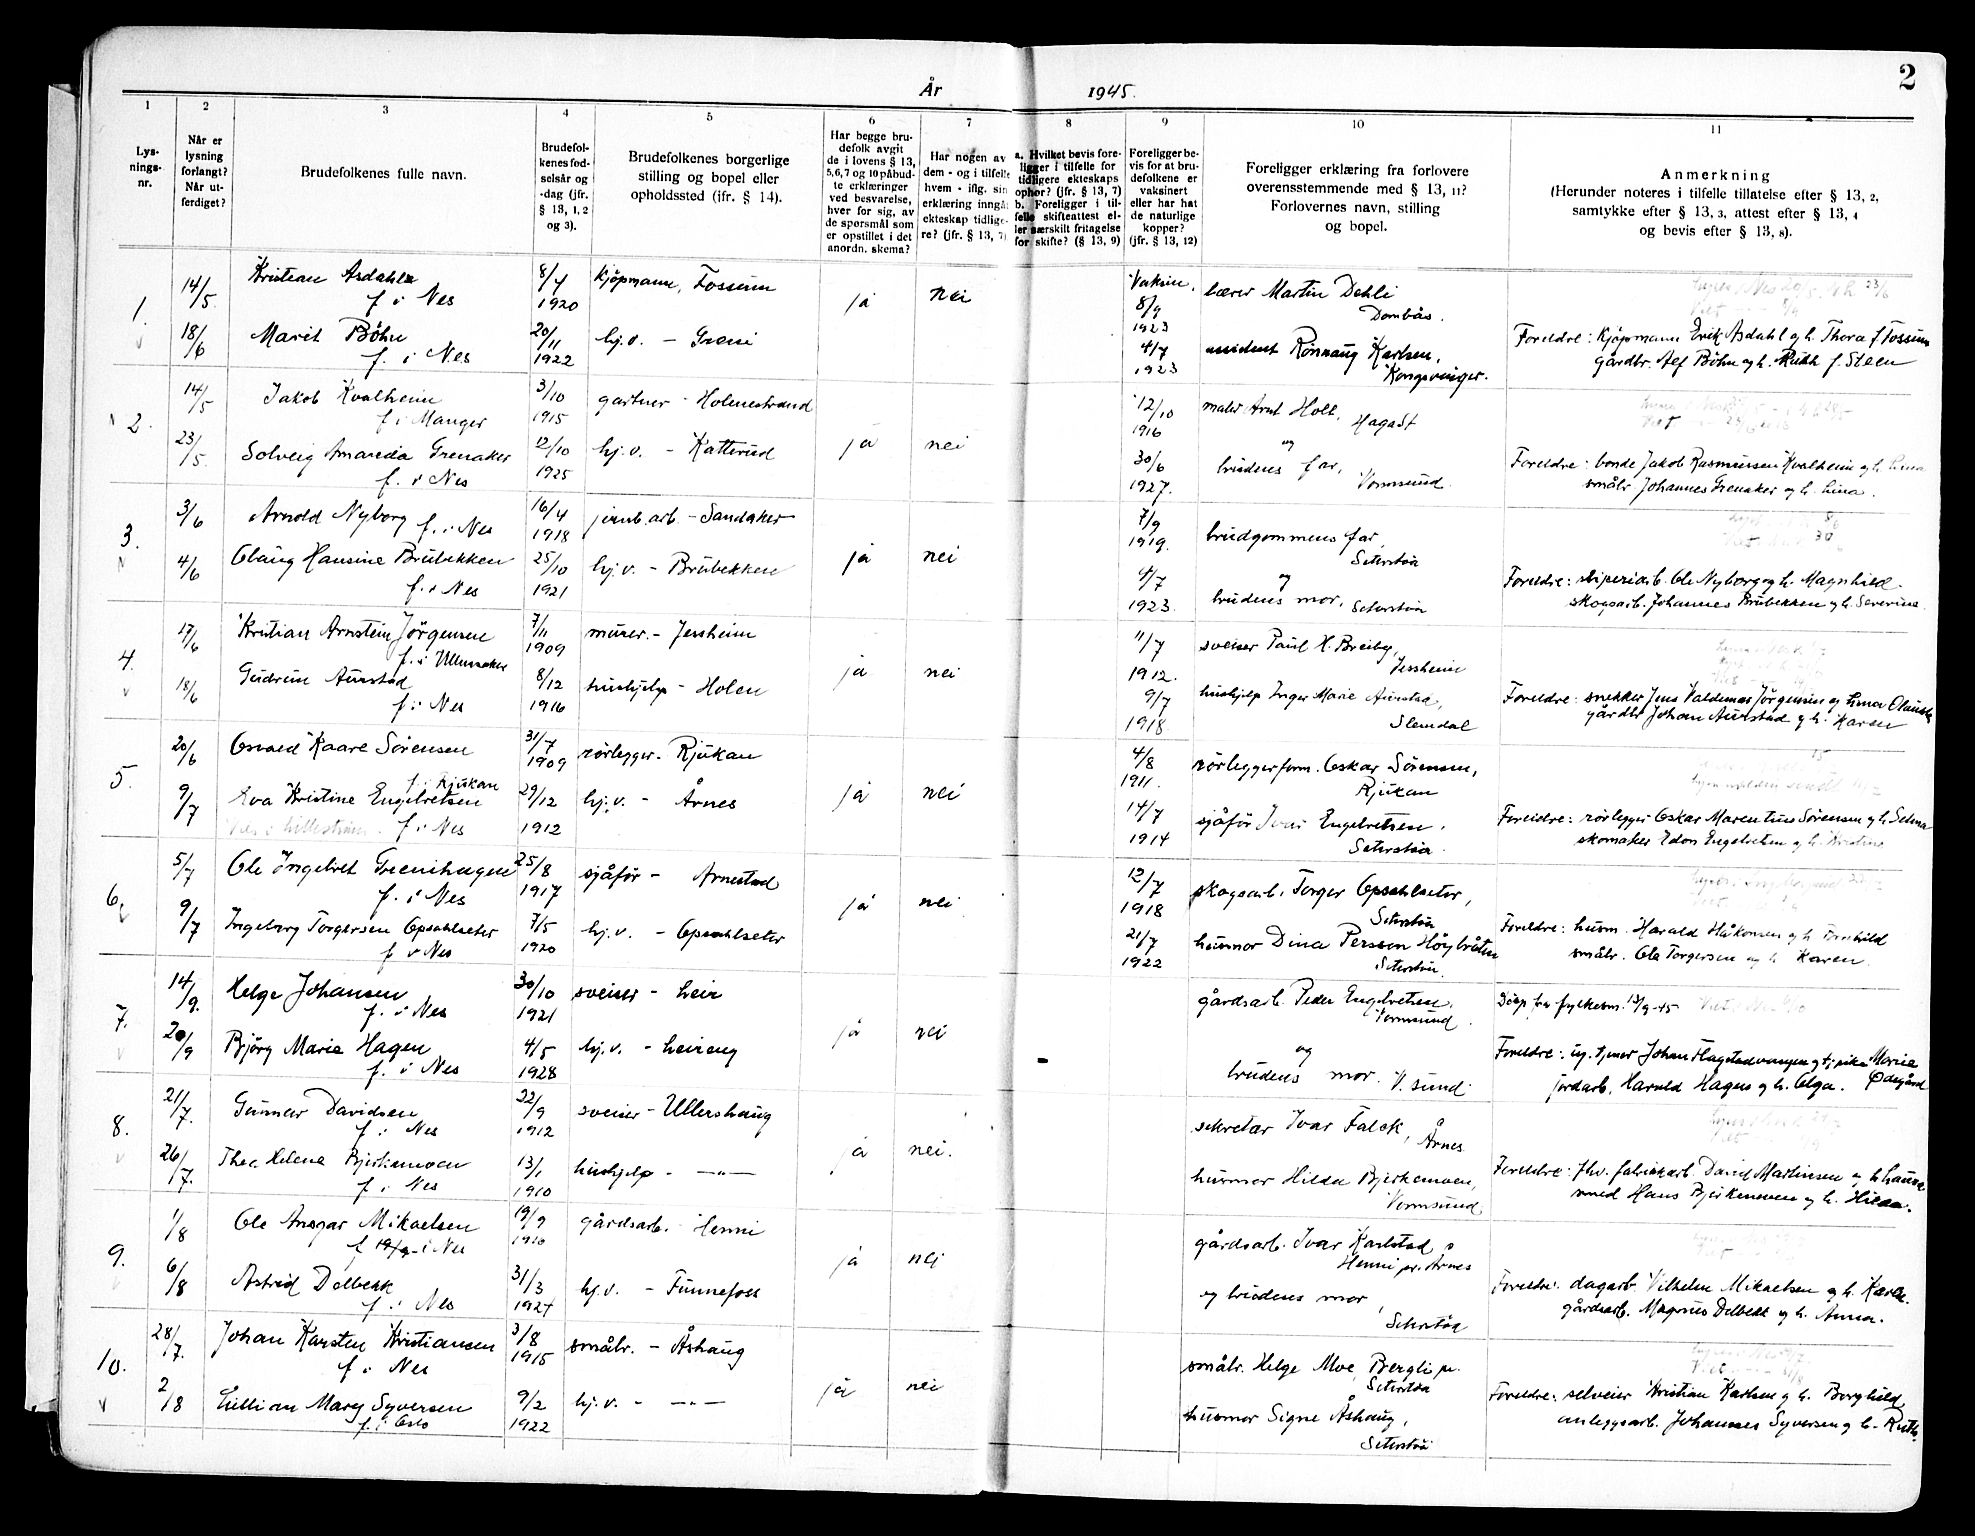 År 1945.
2
1 2 3 4 5 6 7 8 9 10 11
Lys-
nings-
nr.
Når er
lysning
forlangt?
Når ut-
ferdiget?
Brudefolkenes fulle navn.
Brudefol-
kenes fød-
selsår og
-dag (jfr.
§ 13, 1, 2
og 3).
Brudefolkenes borgerlige
stilling og bopel eller
opholdssted (ifr. § 14).
Har begge bru-
defolk avgit
de i lovens § 13,
5,6,7 og 10 påbud-
te erklæringer
ved besvarelse,
hver for sig, av
de spørsmål som
er opstillet i det
anordn. skema?
Har nogen av
dem - og i tilfelle
hvem - iflg. sin
erklæring inngåt
ekteskap tidlige-
re? (jfr. § 13, 7)
a. Hvilket bevis fore-
ligger i tilfelle for
tidligere ekteskaps
ophør? (jfr. § 13, 7)
b. Foreligger i til-
felle skifteattest el-
ler særskilt fritagelse
for skifte? (§ 13, 9)
Foreligger be-
vis for at bru-
defolkene er
vaksinert
eller har hat
de naturlige
kopper?
(jfr. § 13, 12)
Foreligger erklæring fra forlovere
overensstemmende med § 13, 11?
Forlovernes navn, stilling
og bopel.
Anmerkning
(Herunder noteres i tilfelle tillatelse efter § 13, 2,
samtykke efter § 13, 3, attest efter § 13, 4
og bevis efter § 13, 8).
1. 14/5 Kristian Asdahl 8/4 kjøpmann, Fossum ja nei Vaksin. lærer Martin Dehli
f i Nes 1920 8/9 1923 Dombås.
18/6 Marit Bøhn 20/11 hj.v. - Greni 4/7 assistent Rønnaug Karlsen, Foreldre: kjøpmann Erik Asdahl og h. Thora f Fossum
f. i Nes 1922 1923 Kongsvinger. gårdbr. Alf Bøhn og h. Ruth f. Steen
2. 14/5 Jakob Kvalheim 3/10 gartner - Holmestrand ja nei 12/10 maler Arnt Holt,
f i Manger 1915 1916 Hagast
23/5. Solveig Amanda Grenaker 12/10 hj.v. - Katterud 30/6 og brudens far, Foreldre: bonde Jakob Rasmussen Kvalheim og h. Lina
f. i Nes 1925 1927. Vormsund. småbr Johannes Grenaker og h. Lina.
3. 3/6 Arnold Nyborg f. i Nes 16/4 1918 jernb.arb. - Sandaker ja nei 7/9 1919. brudgommens far,
Seterstøa
4/6 Olaug Hansine Brubekken 25/10 hj.v. - Brubekken 4/7 og brudens mor, Seterstøa Foreldre: sliperiarb. Ole Nyborg og h. Magnhild.
f. i Nes 1921 1923. skogsarb. Johannes Brubekken og h. Severine.
4. 17/6 Kristian Arnstein Jørgensen 7/11 murer. - Jessheim ja nei 11/7 sveiser Paul H. Breiby,
f. i Ullensaker 1909 1912. Jessheim
18/6 Gudrun Aurstad 8/12 hushjelp - Holen 9/7 hushjelp Inger Marie Aurstad, Foreldre: snekker Jens Valdemar Jørgensen og
f. i Nes 1916 1918. Slemdal gårdbr Johan Aurstad og h. Karen
5. 20/6 Osvald Kaare Sørensen 31/7 rørlegger. - Rjukan ja nei 4/8 rørleggerform. Oskar Sørensen,
f. i Rjukan 1909 1911. Rjukan
9/7 Eva Kristine Engebretsen 29/12 hj.v. - Årnes 14/7 sjåfør Ivar Engebretsen. Foreldre: rørlegger Oskar Sørensen og h. Selma
f. i Nes 1912 1914 Seterstøa. skomaker Edon Engebretsen og h. Kristine
6. 5/7 Ole Ingebret Grenihagen 25/8 sjåfør - Arnestad ja nei 12/7 skogsarb. Torger Opsahlseter,
f. i Nes 1917 1918 Seterstøa
9/7 Ingeborg Torgersen Opsahlseter 7/5 hj.v. - Opsahlseter 21/7 husmor Dina Persson Høybråten Foreldre: husm. Harald Håkonsen og h.
f i Nes 1920 1922 Seterstøa. småbr. Ole Torgersen og h. Karen.
7. 14/9. Helge Johansen 30/10 sveiser - Leir ja nei gårdsarb. Peder Engebretsen, Disp. fra fylkesm. 13/9-45
f. i Nes 1921 Vormsund.
20/9 Bjørg Marie Hagen 4/5 hj.v. - Leireng og Foreldre: ug. tjener Johan Flagstadvangen og tj.pike Marie Ødegård
f. i Nes 1928 brudens mor. V.sund. jordarb. Harald Hagen og h. Olga.
8. 21/7. Gunnar Davidsen 22/9 sveiser - Ullershaug ja nei. sekretær Ivar Falck,
f. i Nes 1912 Årnes
26/7. Thea Helene Bjerkemoen 13/1 hushjelp - — " — husmor Hilda Bjerkemoen, Foreldre: fhv. fabrikkarb. David Martinsen og h Laura
f. i Nes 1910 Vormsund. smed Hans Bjerkemoen og h. Hilda.
9. 1/8 Ole Ansgar Mikaelsen 19/9 gårdsarb. - Henni ja nei gårdsarb. Ivar Karlstad
f i Nes 1910 Henni pr. Årnes
6/8 Astrid Delbekk 31/3 hj.v. - Funnefoss og brudens mor, Foreldre: dagarb. Vilhelm Mikaelsen og h. Karen.
f. i Nes 1927 Seterstøa gårdsarb. Magnus Delbekk og h. Anna.
10. 28/7. Johan Karsten Kristiansen 3/8 småbr. - Åshaug ja nei småbr. Helge Moe, Bergli pr.
f. i Nes 1915 Seterstøa
2/8 Lillian Mary Syversen 9/2 hj.v. - — " — husmor Signe Åshaug, Foreldre: selveier Kristian Karlsen og h. Borghild
f. i Oslo 1922 Seterstøa anleggsarb. Johannes Syversen og h. Ruth